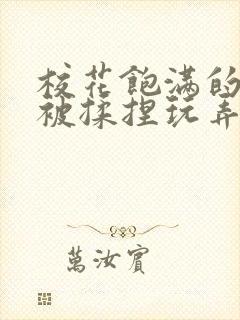 校花飽满的
被揉捏玩弄
萬汝賓